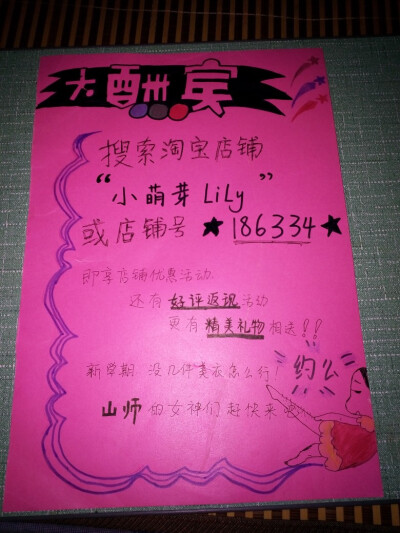 大酬宾
搜索淘宝店铺
“小萌芽 LiLy”
或店铺号 ★186334★
即享店铺优惠活动
还有好评返现活动
更有精美礼物相送!!
约么
新学期,没几件美衣怎么行!
山师的女神们赶快来吧